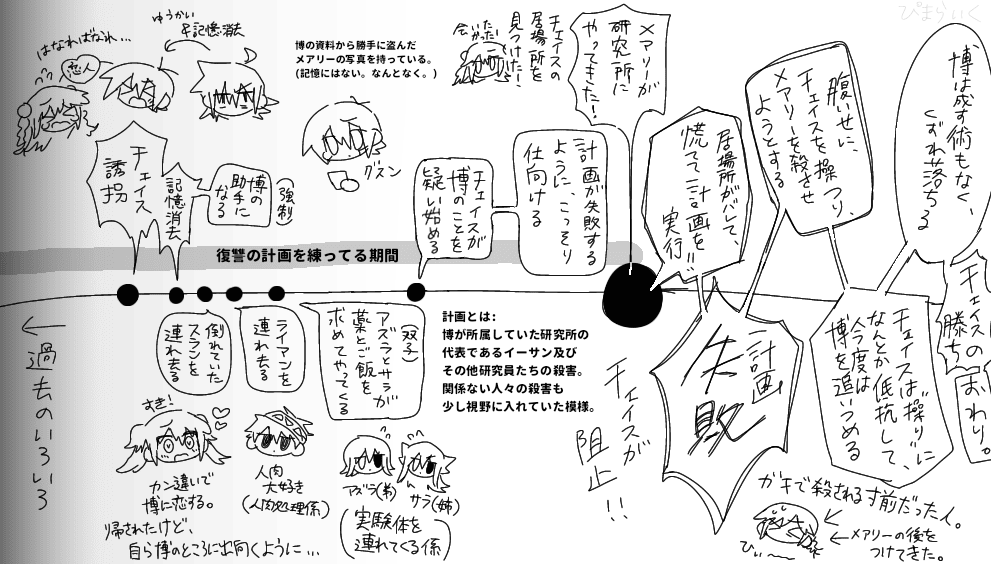 ぴまらいく
ゆうかい
&記憶消去
はなればなれ…
恋人
博の資料から勝手に盗んだ
メアリーの写真を持っている。
(記憶にはない。なんとなく。)
グスン
会いた
かった!
チェイスの
居場所を
見つけた!
メアリーが
研究所に
やってきた!
チェイス
誘拐
記憶消去
博の
助手に
なる
(強制)
チェイスが
博のことを
疑い始める
計画が失敗する
ように、こっそり
仕向ける
居場所がバレて、
慌てて計画を!!
実行
腹いせに、
チェイスを操つり、
メアリーを殺させ
ようとする
博は成す術もなく、
くずれ落ちる
復讐の計画を練ってる期間
←
過去のいろいろ
倒れていた
スランを
連れ去る
ライアンを
連れ去る
(双子)
アズラとサラが
薬とご飯を
求めてやってくる
計画とは:
博が所属していた研究所の
代表であるイーサン及び
その他研究員たちの殺害。
関係ない人々の殺害も
少し視野に入れていた模様。
チェイスが
阻止!!
計画
失敗
チェイスは"操り"に
なんとか抵抗して、
今度は
博を追いつめる
チェイスの
勝ち
おわり。
すき!
カン違いで
博に恋する。
帰されたけど、
自ら博のところに出向くように…
人肉
大好き
(人肉処理係)
アズラ(弟)
サラ(姉)
(実験体を
連れてくる係)
ガチで殺される寸前だった人。
←メアリーの後を
つけてきた。
ひぃ〜